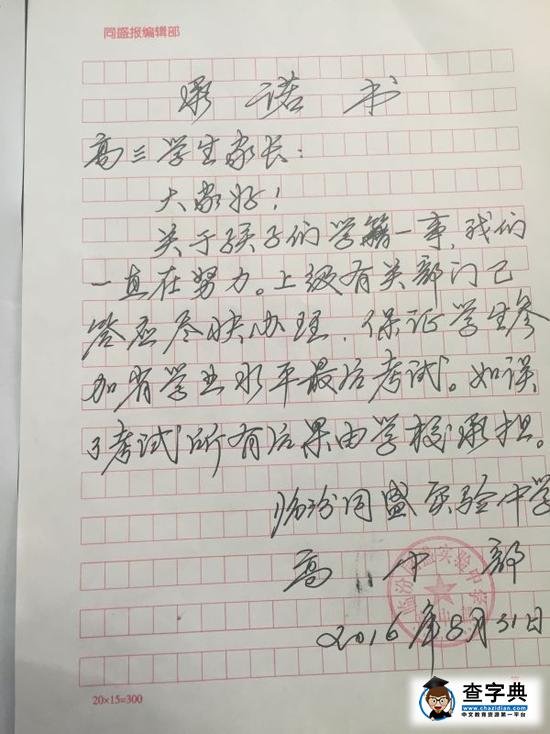 同盛报编辑部
承诺书
高三学生家长：
大家好！
关于孩子们学籍一事，我们
一直在努力。上级有关部门已
答应尽快办理，保证学生参
加省学业水平最后考试。如误
了考试所有后果由学校承担。
临汾同盛实验中学
高中部
2016年8月31日
20×15=300
查字典
中文教育资源第一平台
www.chazidian.com